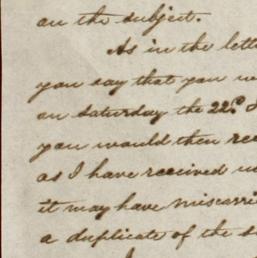 on the subject.
As in the lette
you say that you we
on Saturday the 22d
you would then rec
as I have received
it may have miscarri
a duplicate of the s